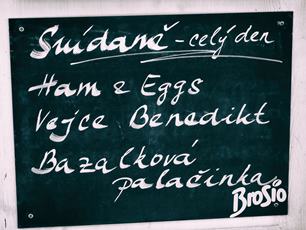 Snídaně - celý den
Ham & Eggs
Vejce Benedikt
Bazalková
palačinka
Brosio